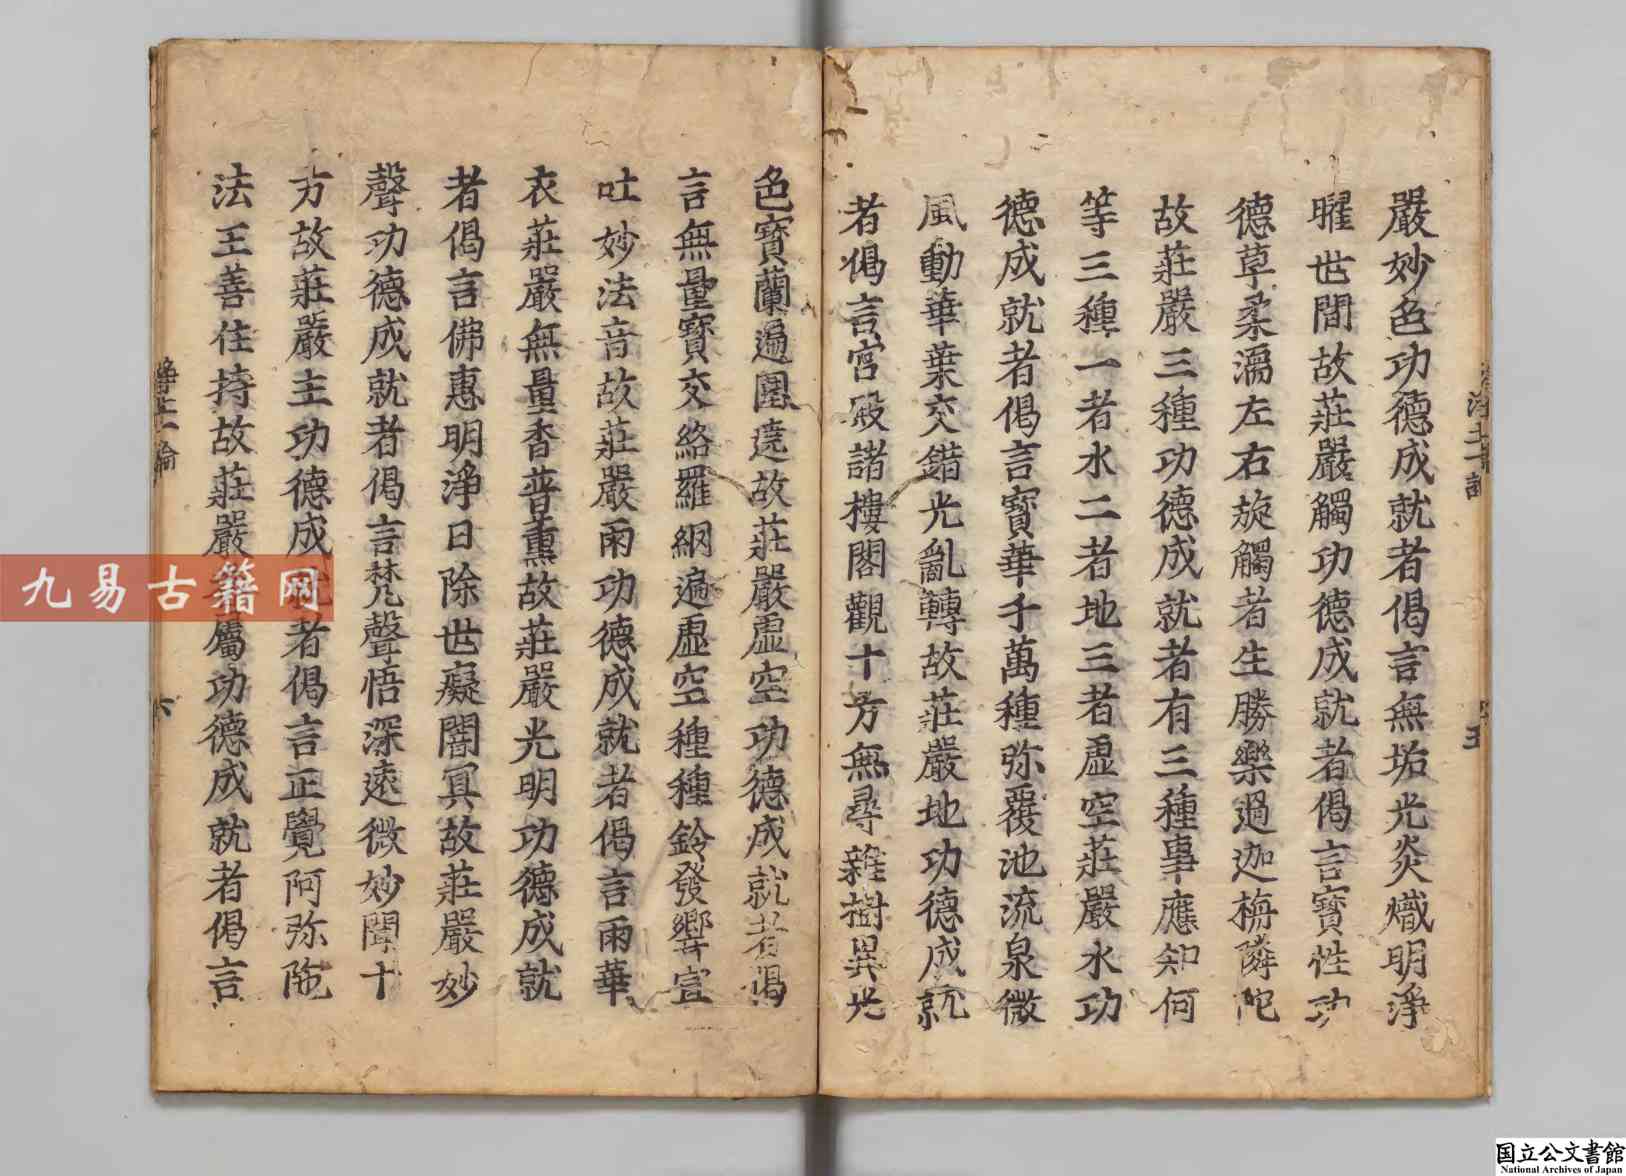 嚴妙色功德成就者偈言無垢光炎熾明淨
曜世間故莊嚴觸功德成就者偈言寶性功
德草柔濡左右旋觸者生勝樂過迦栴隣陀
故莊嚴三種功德成就者有三種事應知何
等三種一者水二者地三者虛空莊嚴水功
德成就者偈言寶華千萬種弥覆池流泉微
風動華葉交錯光亂轉故莊嚴地功德成就
者偈言宮殿諸樓閣觀十方無㝵雜樹異光
色寶蘭遍圍遶故莊嚴虛空功德成就者偈
言無量寶交絡羅網遍虛空種種鈴發響宣
吐妙法音故莊嚴雨功德成就者偈言雨華
衣莊嚴無量香普薰故莊嚴光明功德成就
者偈言佛惠明淨日除世癡闇冥故莊嚴妙
聲功德成就者偈言梵聲悟深遠微妙聞十
方故莊嚴主功德成就者偈言正覺阿弥陁
法王善住持故莊嚴屬功德成就者偈言
淨土論
五
六
九易古籍网
国立公文書館
National Archives of Japan